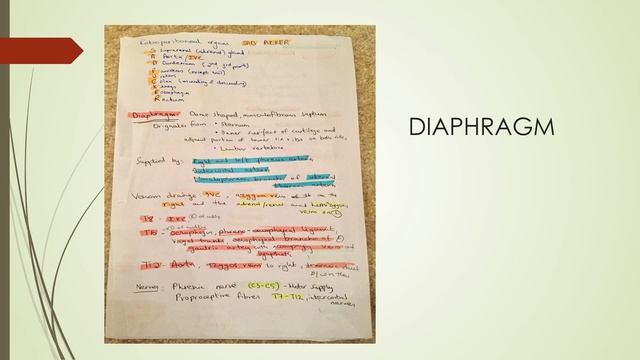 Retroperitoneal organs SAD PUCKER
Suprarenal (adrenal) gland
Aorta / IVC
Duodenum (2nd, 3rd part)
Pancreas (except tail)
Ureters
Colon (ascending & descending)
Kidneys
Oesophagus
Rectum
Diaphragm Dome shaped, musculofibrous septum
Originates from • Sternum
• Inner surface of cartilage and
adjacent portion of lower six ribs on both sides
• Lumbar vertebrae
Supplied by: Right and left phrenic arteries,
Intercostal arteries
Musculophrenic branches of internal
thoracic artery
Venous drainage IVC, azygos vein on the
right and the adrenal/renal and hemiazygos
vein on
T8 - IVC
T10 - Oesophagus, phreno-oesophageal ligament,
Vagal trunks, oesophageal branches of
gastric artery with accompanying vein and
lymphatic
T12 - Aorta, Azygos vein to right, thoracic duct
Nerves: Phrenic nerve (C3-C5) - Motor supply
Proprioceptive fibres T7-T12, intercostal
nerves
DIAPHRAGM